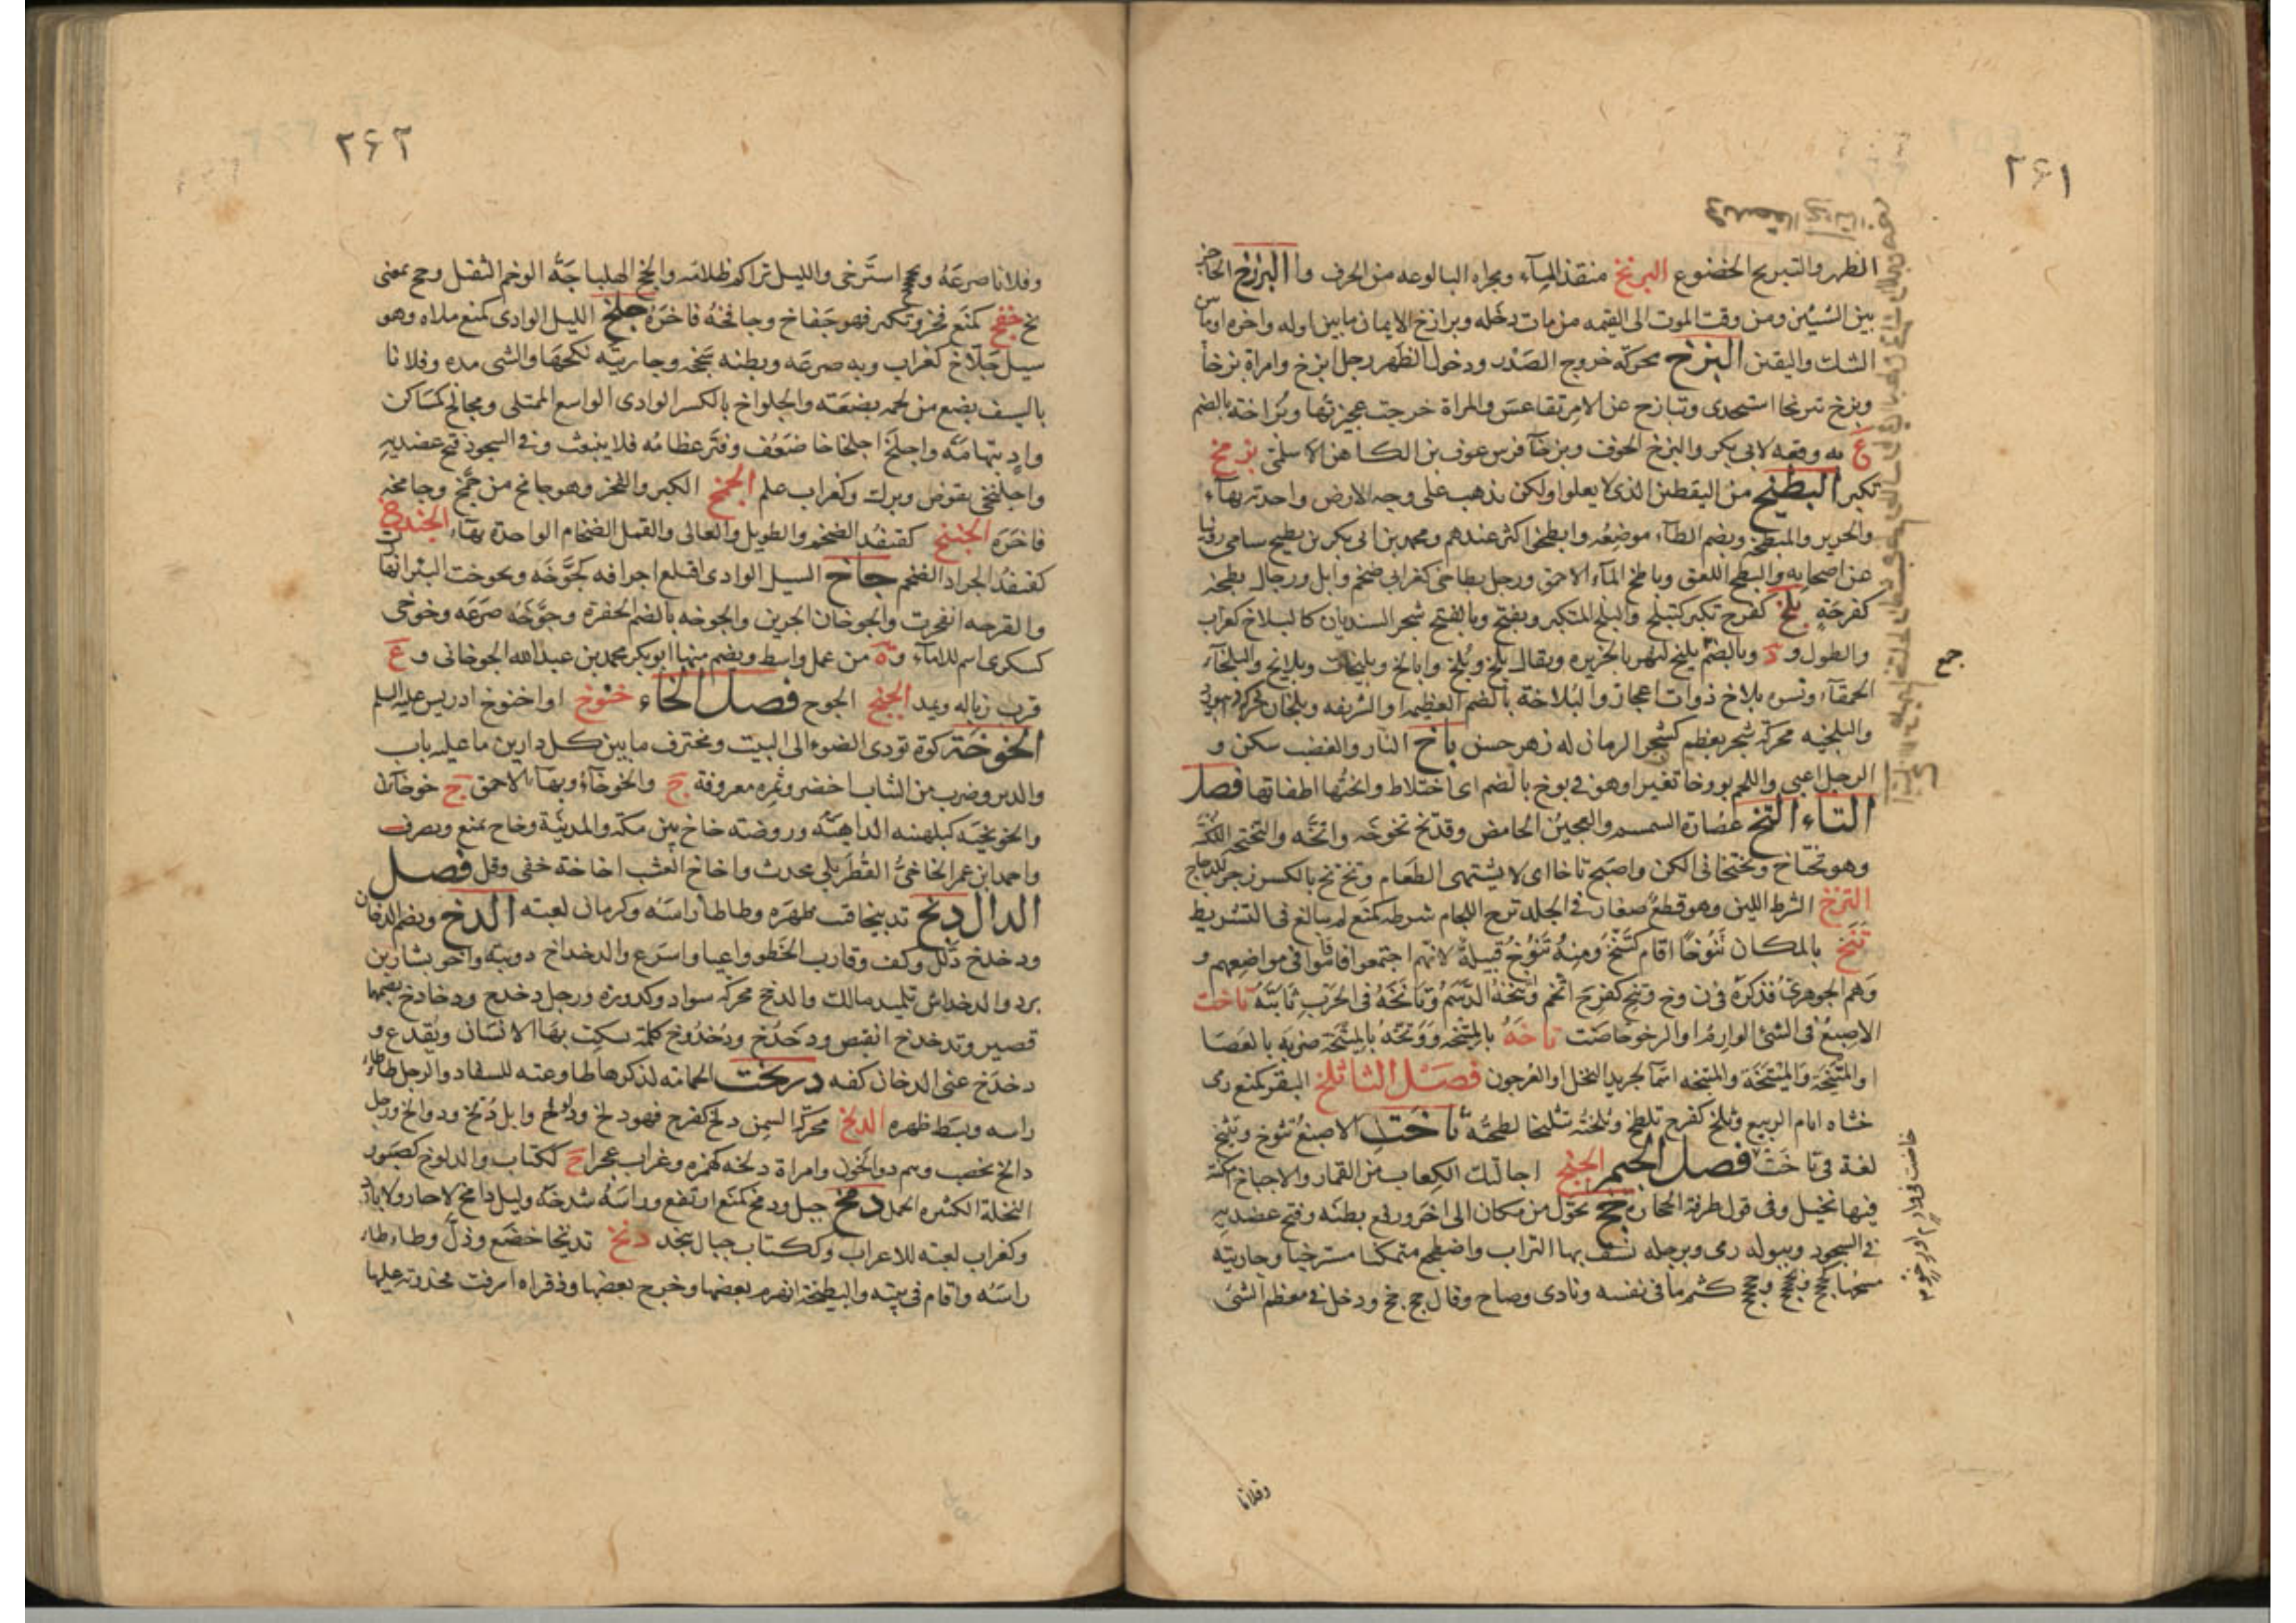 ٢٤١
الظهر والتبريخ الخضوع البربخ منقذ المآء ومجراه البالوعه من الخرف والبرزخ الحاجز
بين الشيئن ومن وقت الموت الى القيمه من مات دخله وبرازخ الايمان ما بين اوله واخره او ما بين
الشك واليقين البزخ محركة خروج الصدر ودخول الظهر رجل ابزخ وامراة بزخآ
وبزخ تبزيخا استخذى وتبازخ عن الامر تقاعس والمراة خرجت عجيزتها وبزاخة بالضم
ع به وقعه لابى بكر والبزخ الجرف وبزخآ فرس عوف بن الكاهن الاسلمى بزمخ
تكبر البطيخ من اليقطين الذى لا يعلوا ولكن يذهب على وجه الارض واحدته بهآء
والمبطخة ويضم الطآء موضعه وابطخوا اكثر عندهم ومحمد بن ابى بكر بن بطيخ سامى روينا
عن اصحابه والبطخ اللعق وباطخ المآء الاحمق ورجل بطاخى كغرابى ضخم وابل ورجال بطخة
كفرحة بلخ كفرح تكبر كتبلخ والبلخ المتكبر ويفتح وبالفتح شجر السنديان كالبلاخ كغراب
والطول و د وبالضم بليخ لنهر بالجزيرة ويقال بلخ وبلخ وابالخ وبليخات وبلائخ والبلخآء
الحمقآء ونسوه بلاخ ذوات اعجاز والبلاخة بالضم العظيمه او الشريفه وبلخان محركة د بورد
والبلخيه محركة شجر يعظم كشجر الرمان له زهر حسن باخ النار والغضب سكن و
الرجل اعيى واللحم بووخا تغير وهم فى بوخ بالضم اى اختلاط وابختها اطفاتها فصل
التاء التخ عصارة السمسم والعجين الحامض وقد تخ تخوخه واتخه والتختخة اللكنة
وهو تختاخ وتختخانى الكن واصبح تاخا اى لا يشتهى الطعام وتخ تخ بالكسر زجر للدجاج
الترخ الشرط اللين وهو قطع صغار فى الجلد ترخ اللجام شرطه كمنع لم يبالغ فى التشريط
تنخ بالمكان تنوخا اقام كتنخ ومنه تنوخ قبيلة لانهم اجتمعوا فاقاموا فى مواضعهم و
وهم الجوهرى فذكره فى ن وخ وتنخ كفرح اتخم وتنخه الدسم وتانخه فى الحرب ثابته تاخت
الاصبع فى الشئ الوارم او الرخو خاضت تاخه بالمتيخة ووتخه بالميتخة ضربه بالعصا
او المتيخة والميتخة والمتيخه اسمآ لجريد النخل او العرجون فصل الثا ثلخ البقر كمنع رمى
خثاه امام الربيع وثلخ كفرح تلطخ وثلخته تثليخا لطخته ثاخت الاصبع تثوخ وتثيخ
لغة فى تاخت فصل الجيم الجبخ اجالتك الكعاب من القمار والاجباخ امكنة
فيها نخيل وفى قول طرفة الحجارة جخ تحول من مكان الى اخر ورفع بطنه وفتح عضديه
فى السجود وببوله رمى وبرجله نسف بها التراب واضطجع متمكنا مسترخيا وجاريته
مسحها كجخجخ وجخجخ كتم ما فى نفسه ونادى وصاح وقال جخ جخ ودخل فى معظم الشئ
جمع
وفلانا
٢٤٢
وفلانا صرعه وتجخجخ استرخى والليل تراكم ظلامه والجخ الهلباجة الوخم الثقيل وجخ بمعنى
بخ جفخ كمنع فخر وتكبر فهو جفاخ وجافخه فاخره جلخ السيل الوادى كمنع ملاه وهو
سيل جلاخ كغراب وبه صرعه وبطنه سحجه وجاريته نكحها والشى مده وفلانا
بالسيف بضع من لحمه بضعته والجلواخ بالكسر الوادى الواسع الممتلى ومجالخ كمساكن
واد بتهامة واجلخ اجلخاخا ضعف وفتر عظامه فلا ينبعث وفى السجود فتح عضديه
واجلنخى تقوض وبرك وكغراب علم الجمخ الكبر والفخر وهو جامخ من جمخ وجامخه
فاخره الجنبخ كقنفذ الضخم والطويل والعالى والقمل الضخام الواحدة بهآء الجندخ
كقنفذ الجراد الضخم جاخ السيل الوادى اقتلع اجرافه كجوخه وتجوخت البئر انهارت
والقرحه انفجرت والجوخان الجرين والجوخه بالضم الحفرة وجوخه صرعه وجوخى
كسكرى اسم للامآء و ة من عمل واسط ويضم منها ابو بكر محمد بن عبد الله الجوخانى و ع
قرب زباله ويمد الجيخ الجوخ فصل الخاء خنوخ او اخنوخ ادريس عليه السلم
الخوخة كوة تودى الضوء الى البيت ومخترف ما بين كل دارين ما عليه باب
والدبر وضرب من الثياب اخضر وثمره معروفة ج والخوخآء وبهآء الاحمق ج خوخآؤن
والخويخية كبلهنية الداهية وروضة خاخ بين مكة والمدينة وخاخ يمنع ويصرف
واحمد ابن عمر الخاخى القطربلى محدث واخاخ العشب اخاخة خفى وقل فصل
الدال دبخ تدبيخا قبب ظهره وطاطا راسه وكرمان لعبه الدخ ويضم الدخان
ودخدخ ذلل وكف وقارب الخطو واعيا واسرع والدخداخ دويبة وابو بشار بن
برد والدخداش تلميد مالك والدخخ محركة سواد وكدورة ورجل دخدخ ودخادخ بضمهما
قصير وتدخدخ انقبض ودخدخ ودخدوخ كلمة يسكت بها الانسان ويقدع و
دخدخ عنى الدخان كفه دربخت الحمامه لذكرها طاوعته للسفاد والرجل طاطا
راسه وبسط ظهره الدلخ محركة السمن دلخ كفرح فهو دلخ ودلوخ وابل دلخ ودوالخ ورجل
دالخ مخصب وهم دوالخون وامراة دلخه كهمزه وغراب عجزا ج ككتاب والدلوخ كصبور
النخلة الكثيره الحمل دمخ جبل ودمخ كمنع ارتفع وراسه شدخه وليل دامخ لا حار ولا بارد
وكغراب لعبه للاعراب وككتاب جبال بنجد دنخ تدنيخا خضع وذل وطاطا
راسه واقام فى بيته والبطيخة انهزم بعضها وخرج بعضها وذفراه اشرفت قمحدوته عليها